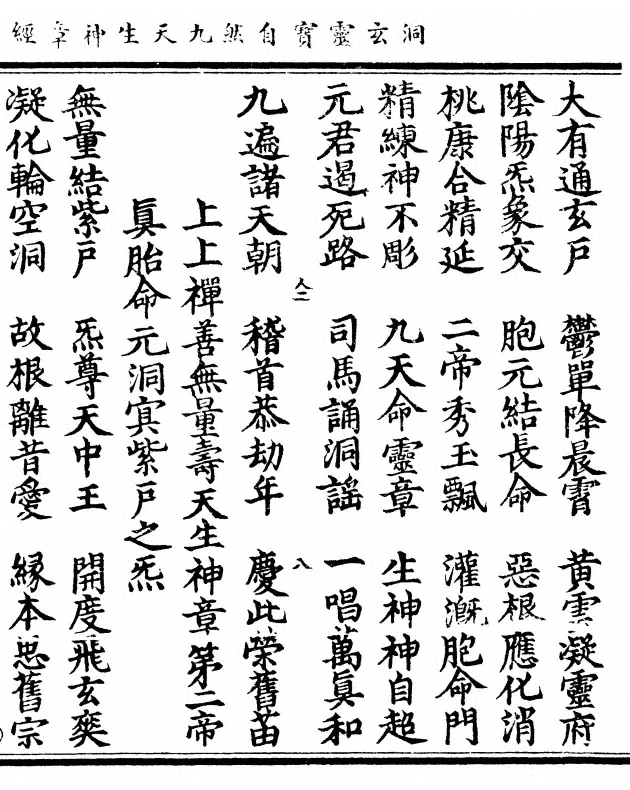 洞玄靈寶自然九天生神章經
大有通玄戶　鬱單降晨霄　黃雲凝靈府
陰陽炁象交　胞元結長命　惡根應化消
桃康合精延　二帝秀玉飄　灌溉胞命門
精練神不彫　九天命靈章　生神神自超
元君遏死路　司馬誦洞謠　一唱萬真和
九遍諸天朝　稽首恭劫年　慶此榮舊苗
上上禪善無量壽天生神章第二帝
真胎命元洞㝠紫戶之炁
無量結紫戶　炁尊天中王　開度飛玄爽
凝化輪空洞　故根離昔愛　緣本思舊宗